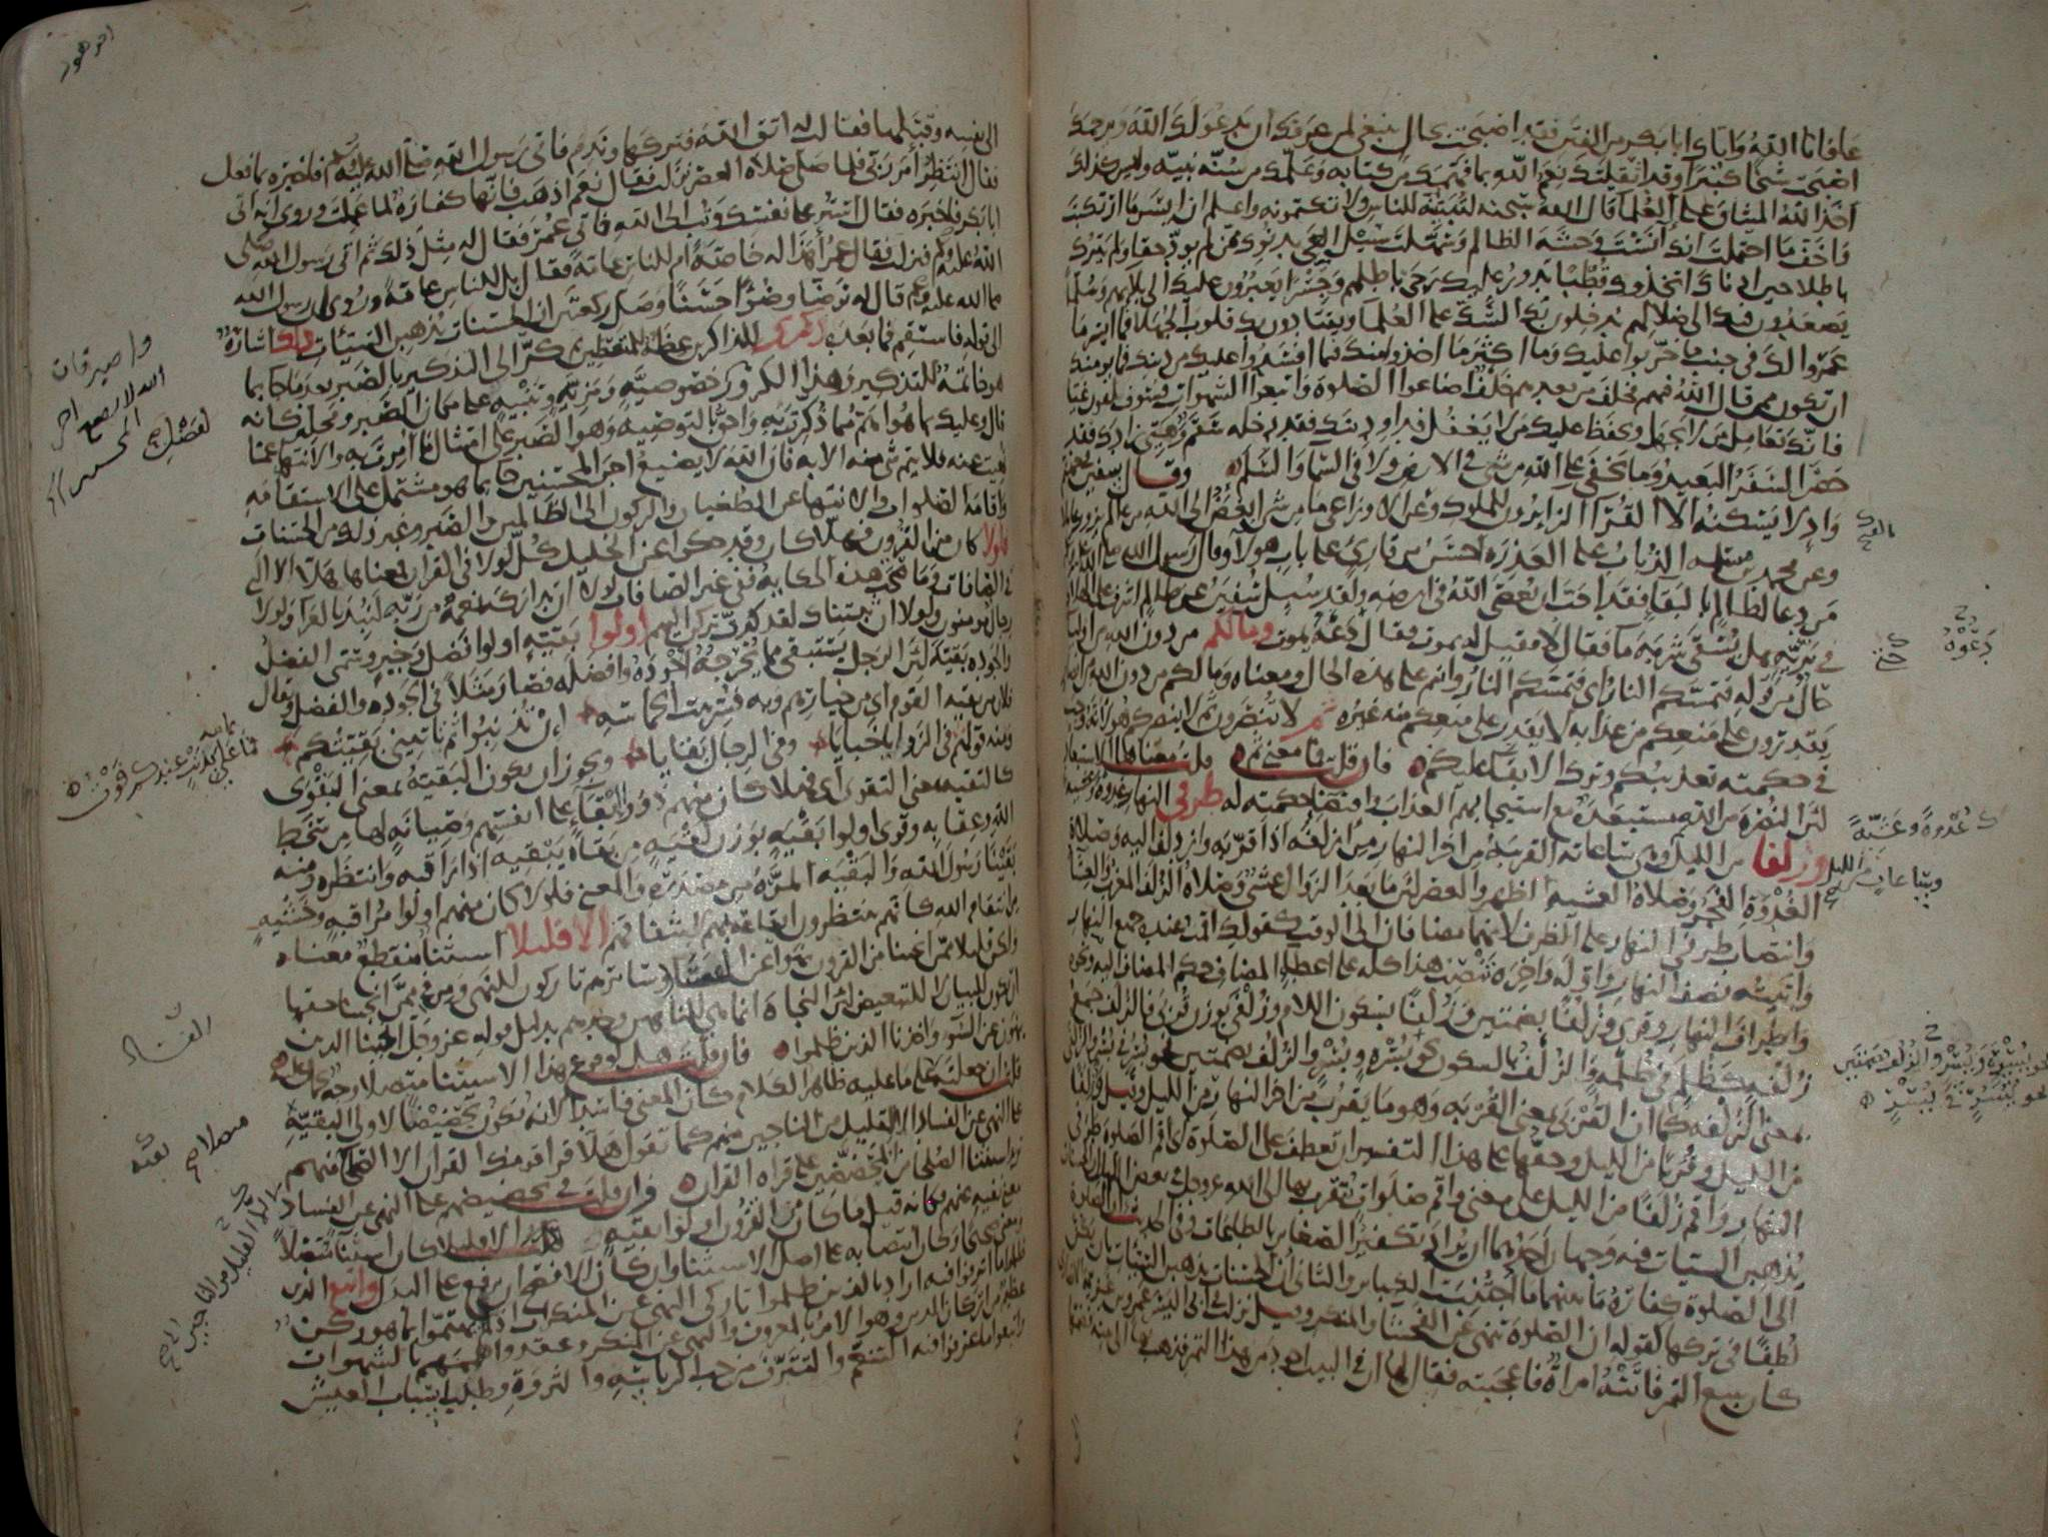 عافانا الله واياك ابا بكر من الفتن فقد اصبحت بحال ينبغي لمن عرفك ان يدعو لك الله ويرحمك
اصبحت شيخا كبيرا وقد اثقلتك نعم الله بما فهمك من كتابه وعلمك من سنة نبيه وليس كذلك
اخذ الله الميثاق على العلما قال الله سبحنه لتبيننه للناس ولا تكتمونه واعلم ان ايسر ما ارتكبت
واخف ما احتملت انك انست وحشة الظالم وسهلت سبيل الغي بدنوك ممن لم يود حقا ولم يترك
باطلا حين ادناك اتخذوك قطبا تدور عليك رحى باطلهم وجسرا يعبرون عليك الى بلايهم وسلما
يصعدون فيك الى ضلالهم يدخلون بك الشك على العلما ويقتادون بك قلوب الجهلا فما ايسر ما
عمروا لك في جنب ما خربوا عليك وما اكثر ما اخذوا منك فيما افسدوا عليك من دينك فما يومنك
ان تكون ممن قال الله فيهم فخلف من بعدهم خلف اضاعوا الصلوة واتبعوا الشهوات فسوف يلقون غيا
فانك تعامل من لا يجهل ويحفظ عليك من لا يغفل فداو دينك فقد دخله سقم وهيئ زادك فقد
حضر السفر البعيد وما يخفى على الله من شى في الارض ولا في السما والسلم وقال سفين في جهنم
واد لا يسكنه الا القرا الزايرون للملوك وعن الاوزاعي ما من شى ابغض الى الله من عالم يزور عاملا
وعن محمد بن مسلمه الذباب على العذرة احسن من قارئ على باب هولا وقال رسول الله صلى الله عليه
من دعا لظالم بالبقا فقد احب ان يعصى الله في ارضه ولقد سيل سفين عن ظالم اشرف على الهلاك
في برية هل يسقى شربة ما فقال لا فقيل له يموت فقال دعه يموت وما لكم من دون الله من اوليا
حال من قوله فتمسكم النار اى فتمسكم النار وانتم على هذه الحال ومعناه وما لكم من دون الله من انصار
يقدرون على منعكم من عذابه لا يقدر على منعكم منه غيره ثم لا تنصرون ثم لا ينصركم هو لانه وجب
في حكمته تعذيبكم وترك الابقا عليكم فان قلت فما معنى ثم قلت معناها الاستبعاد
لان النصرة من الله مستبعدة مع استيجابهم العذاب واقتضا حكمته له طرفي النهار غدوة وعشية
وزلفا من الليل وهي ساعاته القريبة من اخر النهار من ازلفه اذا قربه وازدلف اليه وصلاة
الغدوة الفجر وصلاة العشية الظهر والعصر لان ما بعد الزوال عشي وصلاة الزلف المغرب والعشا
وانتصاب طرفي النهار على الظرف لانهما مضافان الى الوقت كقولك اقمت عنده جميع النهار
واتيته نصف النهار واوله واخره تنصب هذا كله على اعطا المضاف حكم المضاف اليه ونحوه
واطراف النهار وقرى وزلفا بضمتين وزلفا بسكون اللام وزلفى بوزن قربى فالزلف جمع
زلفة كظلم في ظلمة والزلف بالسكون نحو بسرة وبسر والزلف بضمتين نحو بسر في بسر والزلفى
بمعنى الزلفة كما ان القربى بمعنى القربة وهو ما يقرب من اخر النهار من الليل وقيل وزلفا
من الليل وقربا من الليل وحقها على هذا التفسير ان تعطف على الصلوة اى اقم الصلوة طرفي
النهار واقم زلفا من الليل على معنى واقم صلوات تتقرب بها الى الله عز وجل في بعض الليل ان الحسنات
يذهبن السيات فيه وجهان احدهما ان يراد تكفير الصغاير بالطاعات وفي الحديث ان الصلوة
الى الصلوة كفارة ما بينهما ما اجتنبت الكباير والثانى ان الحسنات يذهبن السيئات بان يكن
لطفا في تركها لقوله ان الصلوة تنهى عن الفحشا والمنكر وقيل نزلت في ابي اليسر عمرو بن غزية الانصاري
كان يبيع التمر فاتته امراة فاعجبته فقال لها ان في البيت اجود من هذا التمر فذهب بها الى بيته فضمها
بالفتح
دعوه
غدوة وعشية
وساعات من الليل
نحو بسرة وبسر والزلف بضمتين
نحو بسر في بسر
الى نفسه وقبلها فقالت له اتق الله فتركها وندم فاتى رسول الله صلى الله عليه وسلم فاخبره بما فعل
فقال انتظر امر ربي فلما صلى صلاة العصر نزلت فقال نعم اذهب فانها كفارة لما عملت وروى انه اتى
ابا بكر فاخبره فقال استر على نفسك وتب الى الله فاتى عمر فقال له مثل ذلك ثم اتى رسول الله صلى
الله عليه وسلم فنزلت فقال عمر اهذا له خاصة ام للناس عامة فقال بل للناس عامة وروى ان رسول الله
صلى الله عليه وسلم قال له توضا وضوا حسنا وصل ركعتين ان الحسنات يذهبن السيئات ذلك اشارة
الى قوله فاستقم فما بعده ذكرى للذاكرين عظة للمتعظين ثم كر الى التذكير بالصبر بعد ما جا بما
هو خاتمة للتذكير وهذا الكرور لخصوصية ومزية وتنبيه على مكان الصبر ومحله كانه
قال وعليك بما هو اهم مما ذكرت به واحق بالتوصية وهو الصبر على امتثال ما امرت به والانتها عما
نهيت عنه فلا يتم شى منه الا به فان الله لا يضيع اجر المحسنين جا بما هو مشتمل على الاستقامة
واقامة الصلوات والانتها عن الطغيان والركون الى الظالمين والصبر وغير ذلك من الحسنات
فلولا كان من القرون فهلا كان وقد حكوا عن الخليل كل لولا في القران فمعناها هلا الا التي
في الصافات وما صحت هذه الحكاية ففي غير الصافات لولا ان تداركه نعمة من ربه لنبذ بالعرا ولولا
رجال مومنون ولولا ان ثبتناك لقد كدت تركن اليهم اولوا بقية اولوا فضل وخير وسمى الفضل
والجودة بقية لان الرجل يستبقي مما يخرجه اجوده وافضله فصار مثلا في الجودة والفضل ويقال
فلان من بقية القوم اى من خيارهم وبه فسر بيت الحماسة ان تذنبوا ثم تاتيني بقيتكم
ومنه قولهم في الزوايا خبايا وفي الرجال بقايا ويجوز ان يكون البقية بمعنى البقوى
كالتقية بمعنى التقوى اى فهلا كان منهم ذوو ابقاء على انفسهم وصيانة لها من سخط
الله وعقابه وقرى اولوا بقية بوزن لقية من بقاه يبقيه اذا راقبه وانتظره ومنه
بقينا رسول الله والبقية المرة من مصدره والمعنى فلولا كان منهم اولوا مراقبة وخشية
من انتقام الله كانهم ينتظرون ايقاعه بهم لاشفاقهم الا قليلا استثنا منقطع معناه
ولكن قليلا ممن انجينا من القرون نهوا عن الفساد وسائرهم تاركون للنهى ومن في ممن انجينا حقها
ان تكون للبيان لا للتبعيض لان النجاة انما هي للناهين وحدهم بدليل قوله عز وجل انجينا الذين
ينهون عن السوء واخذنا الذين ظلموا فان قلت هل لوقوع هذا الاستثنا متصلا وجه يحمل عليه
قلت ان جعلته متصلا على ما عليه ظاهر الكلام كان المعنى فاسدا لانه يكون تحضيضا لاولى البقية
على النهى عن الفساد الا للقليل من الناجين منهم كما تقول هلا قرا قومك القران الا الصلحا منهم
تريد استثنا الصلحا من المحضضين على قراة القران وان قلت في تحضيضهم على النهى عن الفساد
معنى نفيه عنهم فكانه قيل ما كان من القرون اولوا بقية الا قليلا كان استثنا متصلا
ومعنى صحيحا وكان انتصابه على اصل الاستثنا وان كان الافصح ان يرفع على البدل واتبع الذين
ظلموا ما اترفوا فيه اراد بالذين ظلموا تاركى النهى عن المنكرات اى لم يهتموا بما هو ركن
عظيم من اركان الدين وهو الامر بالمعروف والنهى عن المنكر وعقدوا هممهم بالشهوات
واتبعوا ما عرفوا فيه التنعم والتترف من حب الرياسة والثروة وطلب اسباب العيش
واصبر فان
الله لا يضيع اجر
المحسنين
فما علي بذنب عندكم فوت
الفساد
متصلا
بقية
الا القليل من الناجين